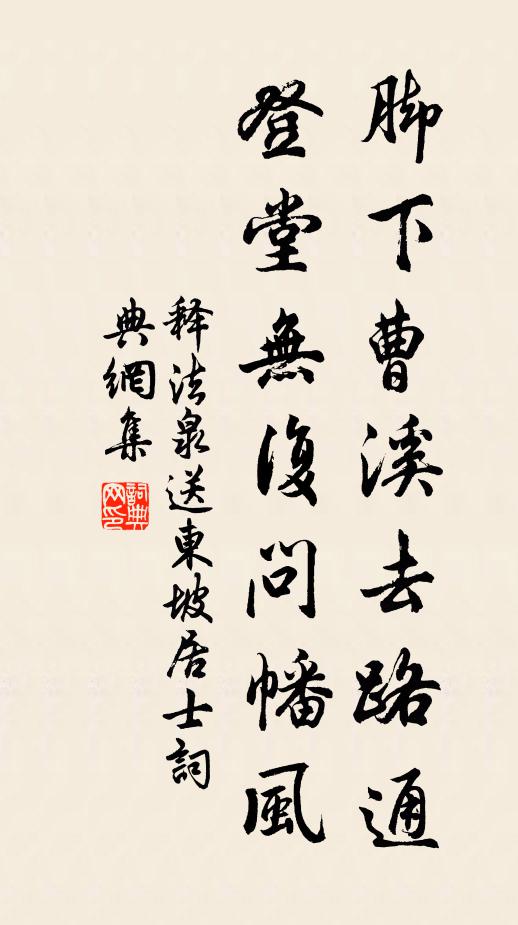 脚下曹溪去路通
登堂無復問幡風
释法泉送東坡居士詞
典網集
詞典网印